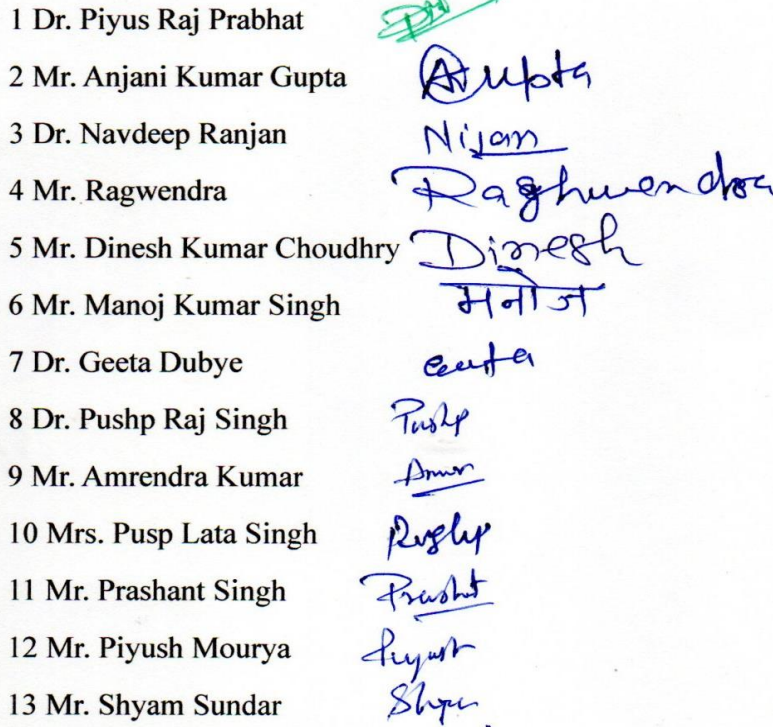 1 Dr. Piyus Raj Prabhat
2 Mr. Anjani Kumar Gupta Gupta
3 Dr. Navdeep Ranjan
4 Mr. Ragwendra Raghwendra
5 Mr. Dinesh Kumar Choudhry Dinesh
6 Mr. Manoj Kumar Singh मनोज
7 Dr. Geeta Dubye
8 Dr. Pushp Raj Singh Pushp
9 Mr. Amrendra Kumar
10 Mrs. Pusp Lata Singh
11 Mr. Prashant Singh
12 Mr. Piyush Mourya
13 Mr. Shyam Sundar